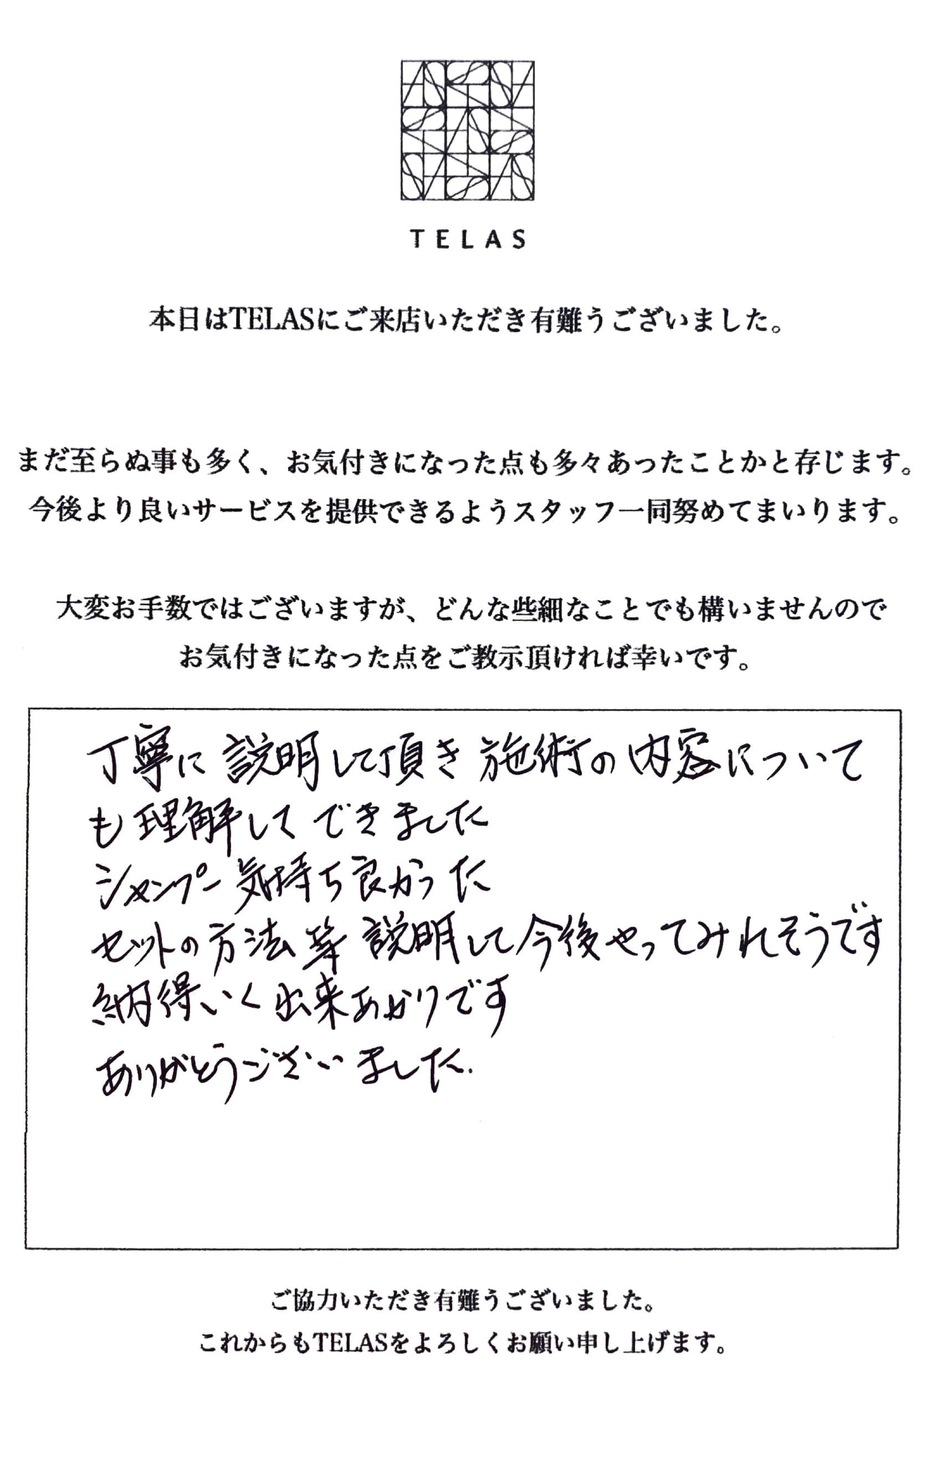 TELAS
本日はTELASにご来店いただき有難うございました。
まだ至らぬ事も多く、お気付きになった点も多々あったことかと存じます。
今後より良いサービスを提供できるようスタッフ一同努めてまいります。
大変お手数ではございますが、どんな些細なことでも構いませんので
お気付きになった点をご教示頂ければ幸いです。
丁寧に説明して頂き施術の内容について
も理解してできました
シャンプー気持ち良かった
セットの方法等説明して今後やってみれそうです
納得いく出来あがりです
ありがとうございました.
ご協力いただき有難うございました。
これからもTELASをよろしくお願い申し上げます。